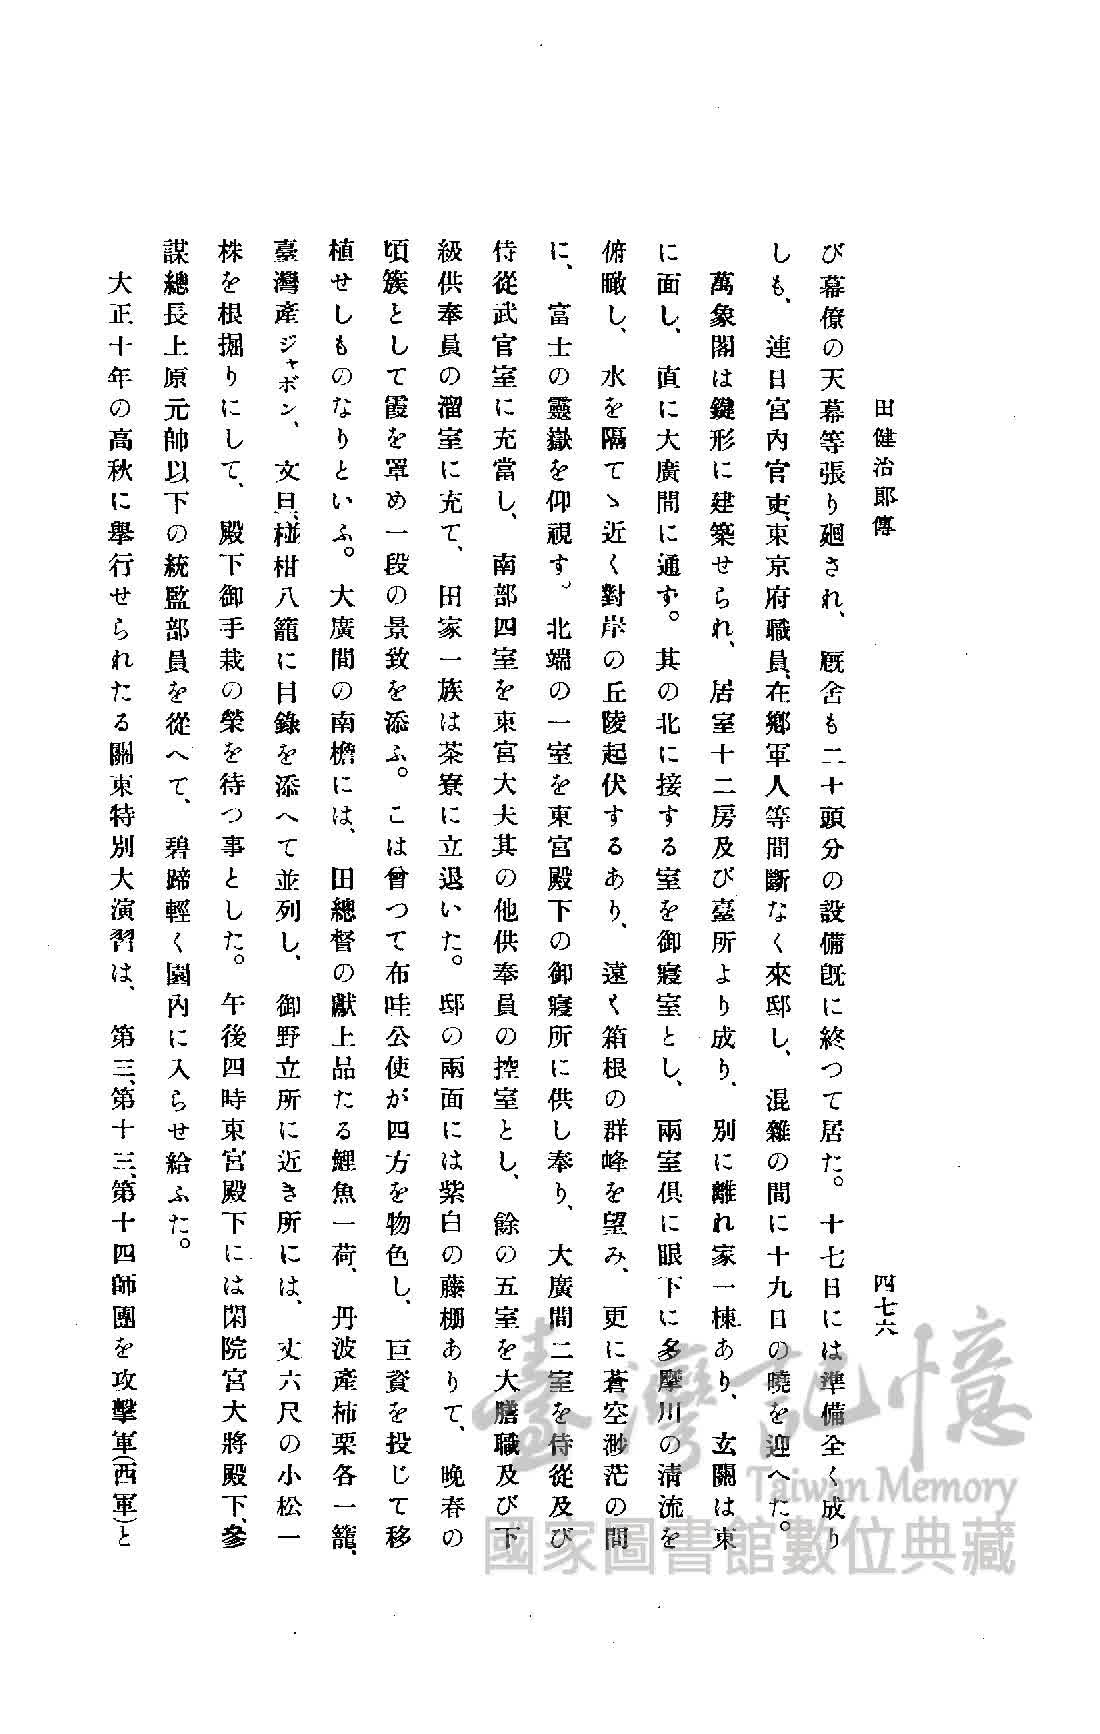 田健治郎傳
四七六
び幕僚の天幕等張り廻され、厩舍も二十頭分の設備既に終つて居た。十七日には準備全く成り
しも、連日宮內官吏、東京府職員、在鄕軍人等間斷なく來邸し、混雜の間に十九日の曉を迎へた。
萬象閣は鍵形に建築せられ、居室十二房及び臺所より成り、別に離れ家一棟あり、玄關は東
に面し、直に大廣間に通ず。其の北に接する室を御寢室とし、兩室俱に眼下に多摩川の淸流を
俯瞰し、水を隔てゝ近く對岸の丘陵起伏するあり、遠く箱根の群峰を望み、更に蒼空渺茫の間
に、富士の靈嶽を仰視す。北端の一室を東宮殿下の御寢所に供し奉り、大廣間二室を侍從及び
侍從武官室に充當し、南部四室を東宮大夫其の他供奉員の控室とし、餘の五室を大膳職及び下
級供奉員の溜室に充て、田家一族は茶寮に立退いた。邸の兩面には紫白の藤棚ありて、晚春の
頃簇として霞を罩め一段の景致を添ふ。こは曾つて布哇公使が四方を物色し、巨資を投じて移
植せしものなりといふ。大廣間の南檐には、田總督の獻上品たる鯉魚一荷、丹波產柿栗各一籠、
臺灣產ジャボン、文旦、椪柑八籠に目錄を添へて並列し、御野立所に近き所には、丈六尺の小松一
株を根掘りにして、殿下御手栽の榮を待つ事とした。午後四時東宮殿下には閑院宮大將殿下、參
謀總長上原元帥以下の統監部員を從へて、碧蹄輕く園內に入らせ給ふた。
大正十年の高秋に擧行せられたる關東特別大演習は、第三、第十三、第十四師團を攻擊軍(西軍)と
臺灣記憶
Taiwan Memory
國家圖書館數位典藏